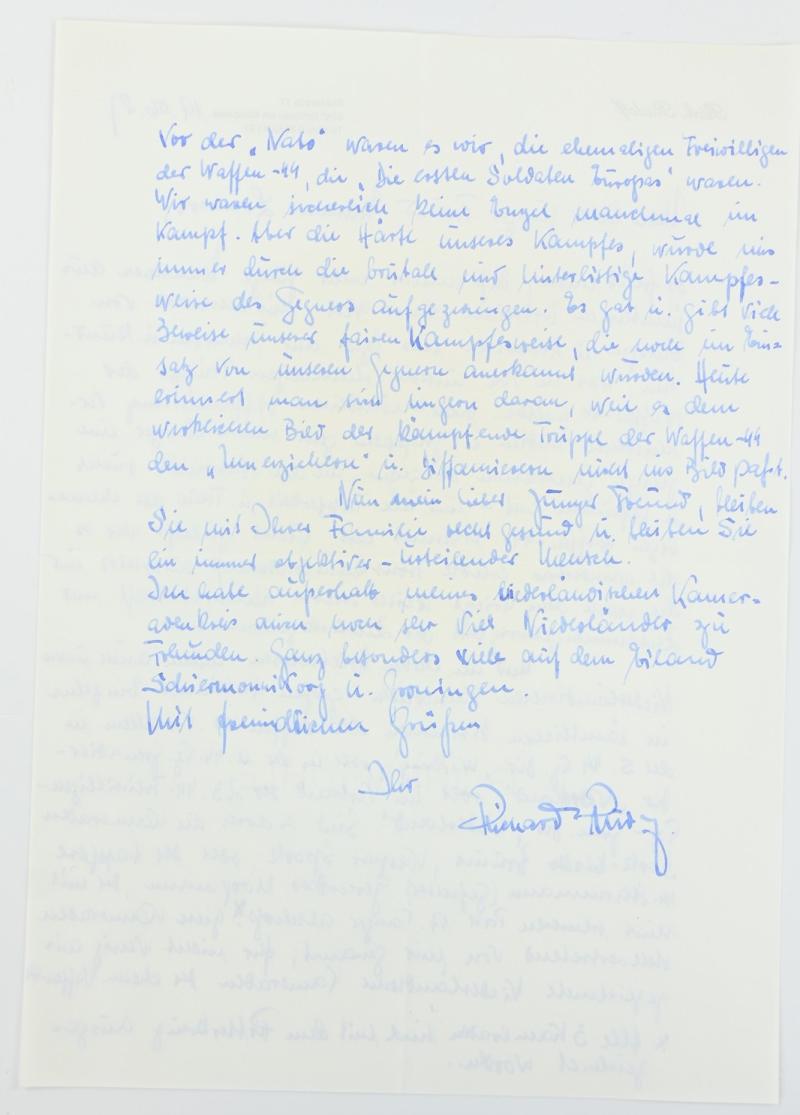 Vor der „Nato" waren es wir, die ehemaligen Freiwilligen
der Waffen-44, die „Die ersten Soldaten Europas" waren.
Wir waren sicherlich keine Engel manchmal im
Kampf. Aber die Härte unseres Kampfes, wurde uns
immer durch die brutale und hinterlistige Kampfes-
weise des Gegners aufgezwungen. Es gab u. gibt viele
Beweise unserer fairen Kampfesweise, die noch im Ein=
satz von unseren Gegnern anerkannt wurden. Heute
erinnert man sich ungern daran, weil es dem
wirklichen Bild der kämpfende Truppe der Waffen-44
den „Umerziehern" u. Diffamierern nicht ins Bild paßt.
Nun mein lieber junger Freund, bleiben
Sie mit Ihrer Familie recht gesund u. bleiben Sie
ein immer objektiver-urteilender Mensch.
Ich habe außerhalb meines niederländischen Kamer=
adenkreis auch noch sehr viel Niederländer zu
Freunden Ganz besonders viele auf dem Eiland
Schiermonnikoog u. Groningen.
Mit freundlichen Grüßen
Ihr
Richard